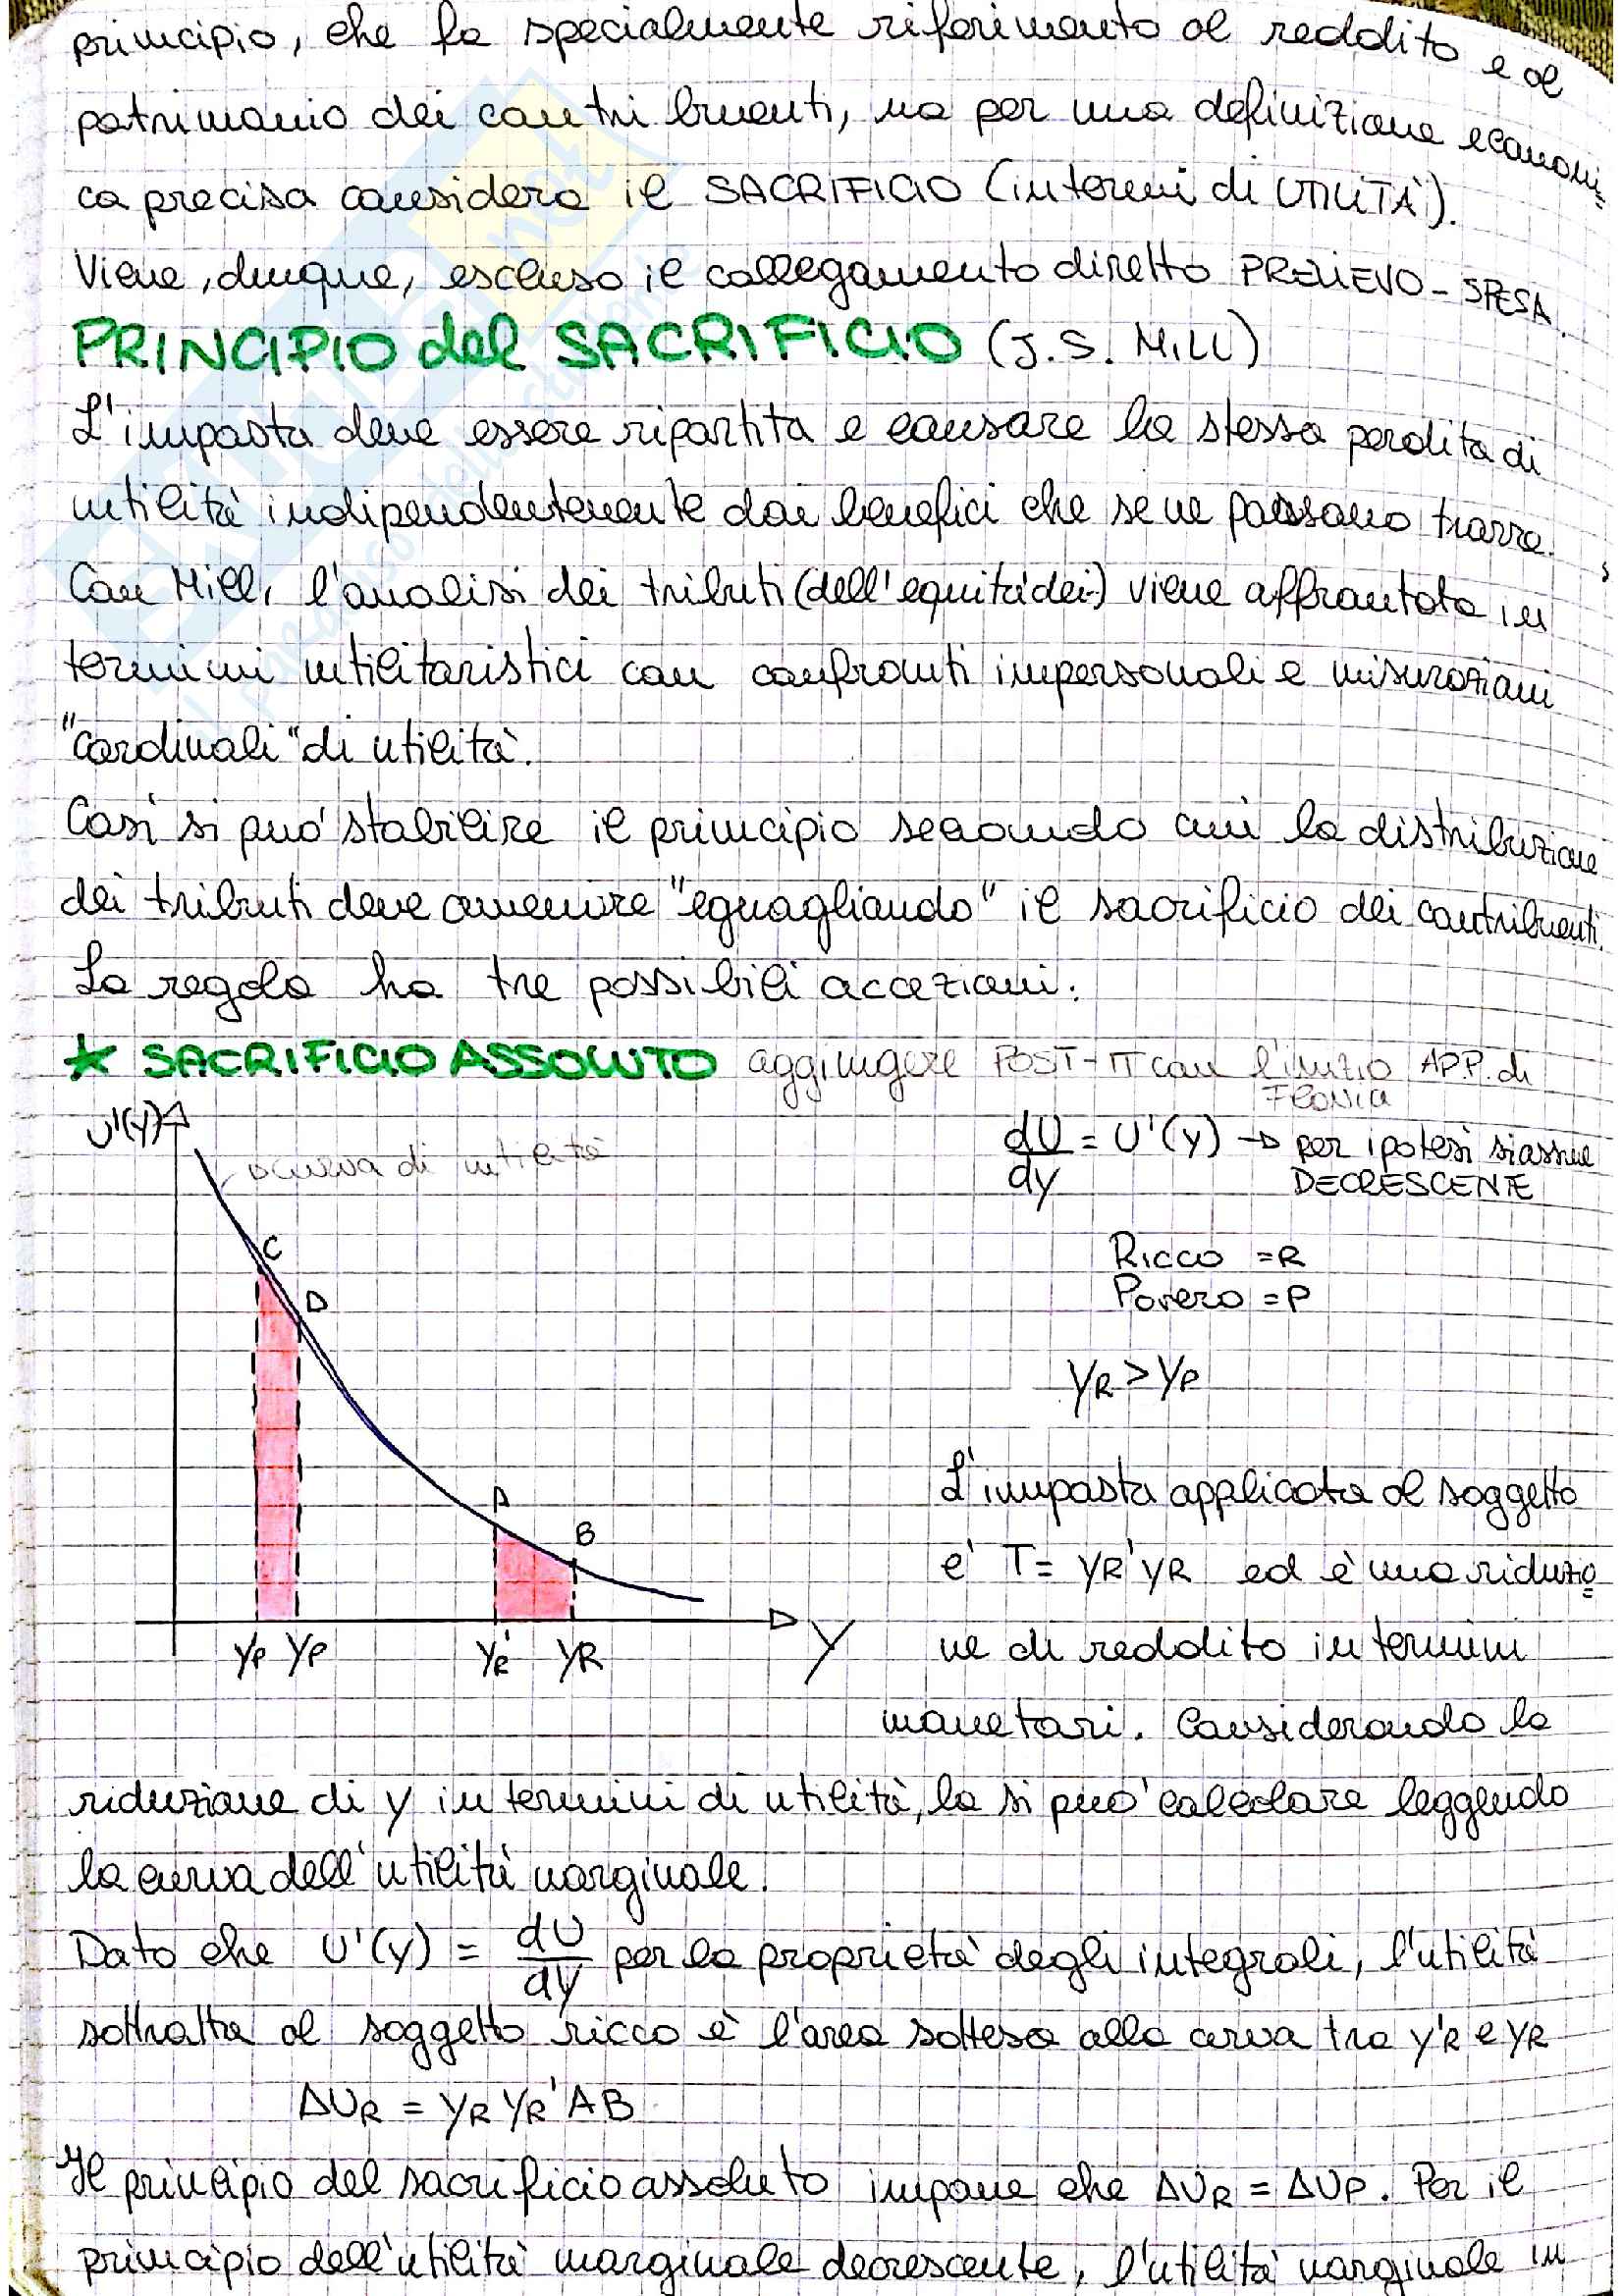 principio, che fa specialmente riferimento al reddito e al
patrimonio dei contribuenti, ma per una definizione economi=
ca precisa considera il SACRIFICIO (in termini di UTILITÀ).
Viene, dunque, escluso il collegamento diretto PRELIEVO-SPESA.
PRINCIPIO del SACRIFICIO (J.S. MILL)
L'imposta deve essere ripartita e causare la stessa perdita di
utilità indipendentemente dai benefici che se ne possano trarre.
Con Mill, l'analisi dei tributi (dell'equità dei-) viene affrontata in
termini utilitaristici con confronti impersonali e misurazioni
"cardinali" di utilità.
Così si può stabilire il principio secondo cui la distribuzione
dei tributi deve avvenire "eguagliando" il sacrificio dei contribuenti.
La regola ha tre possibili accezioni:
* SACRIFICIO ASSOLUTO aggiungere POST-IT con l'inizio APP. di
U'(y)
curva di utilità
dU/dy = U'(y) → per ipotesi si assume
DECRESCENTE
Ricco = R
Povero = P
yR > yP
C
D
A
B
yP yP yR' yR y
L'imposta applicata al soggetto
e' T = yR'yR ed è una riduzio=
ne di reddito in termini
monetari. Considerando la
riduzione di y in termini di utilità, la si può calcolare leggendo
la curva dell'utilità marginale.
Dato che U'(y) = dU/dy per la proprietà degli integrali, l'utilità
sottratta al soggetto ricco è l'area sottesa alla curva tra y'R e yR
ΔUR = yR yR' AB
Il principio del sacrificio assoluto impone che ΔUR = ΔUP. Per il
principio dell'utilità marginale decrescente, l'utilità marginale in